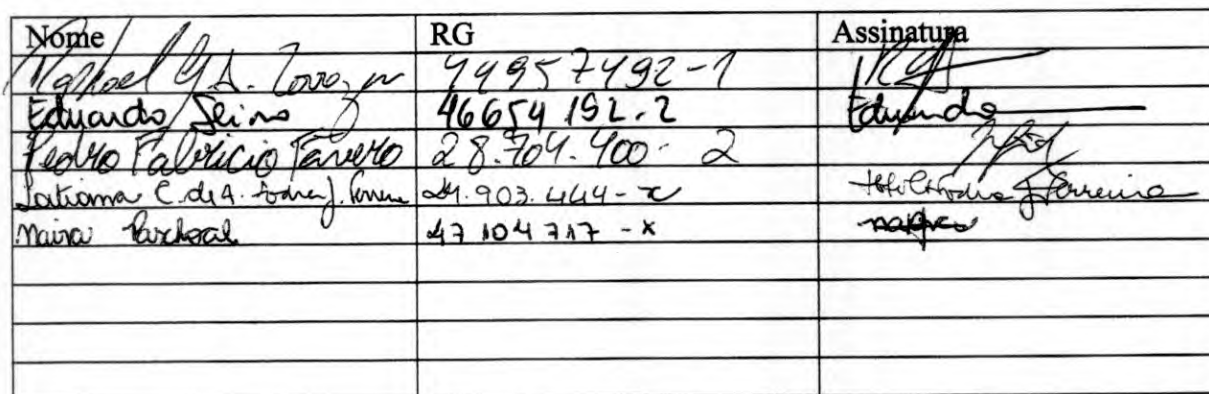 Nome RG Assinatura
Raphael G.A. 44957492-1
Eduardo 46654192.2 Eduardo
Pedro Fabricio Favero 28.704.400-2
Tatiana C. de A. 24.903.444-x Ferreira
Naira Paschoal 47104717-x